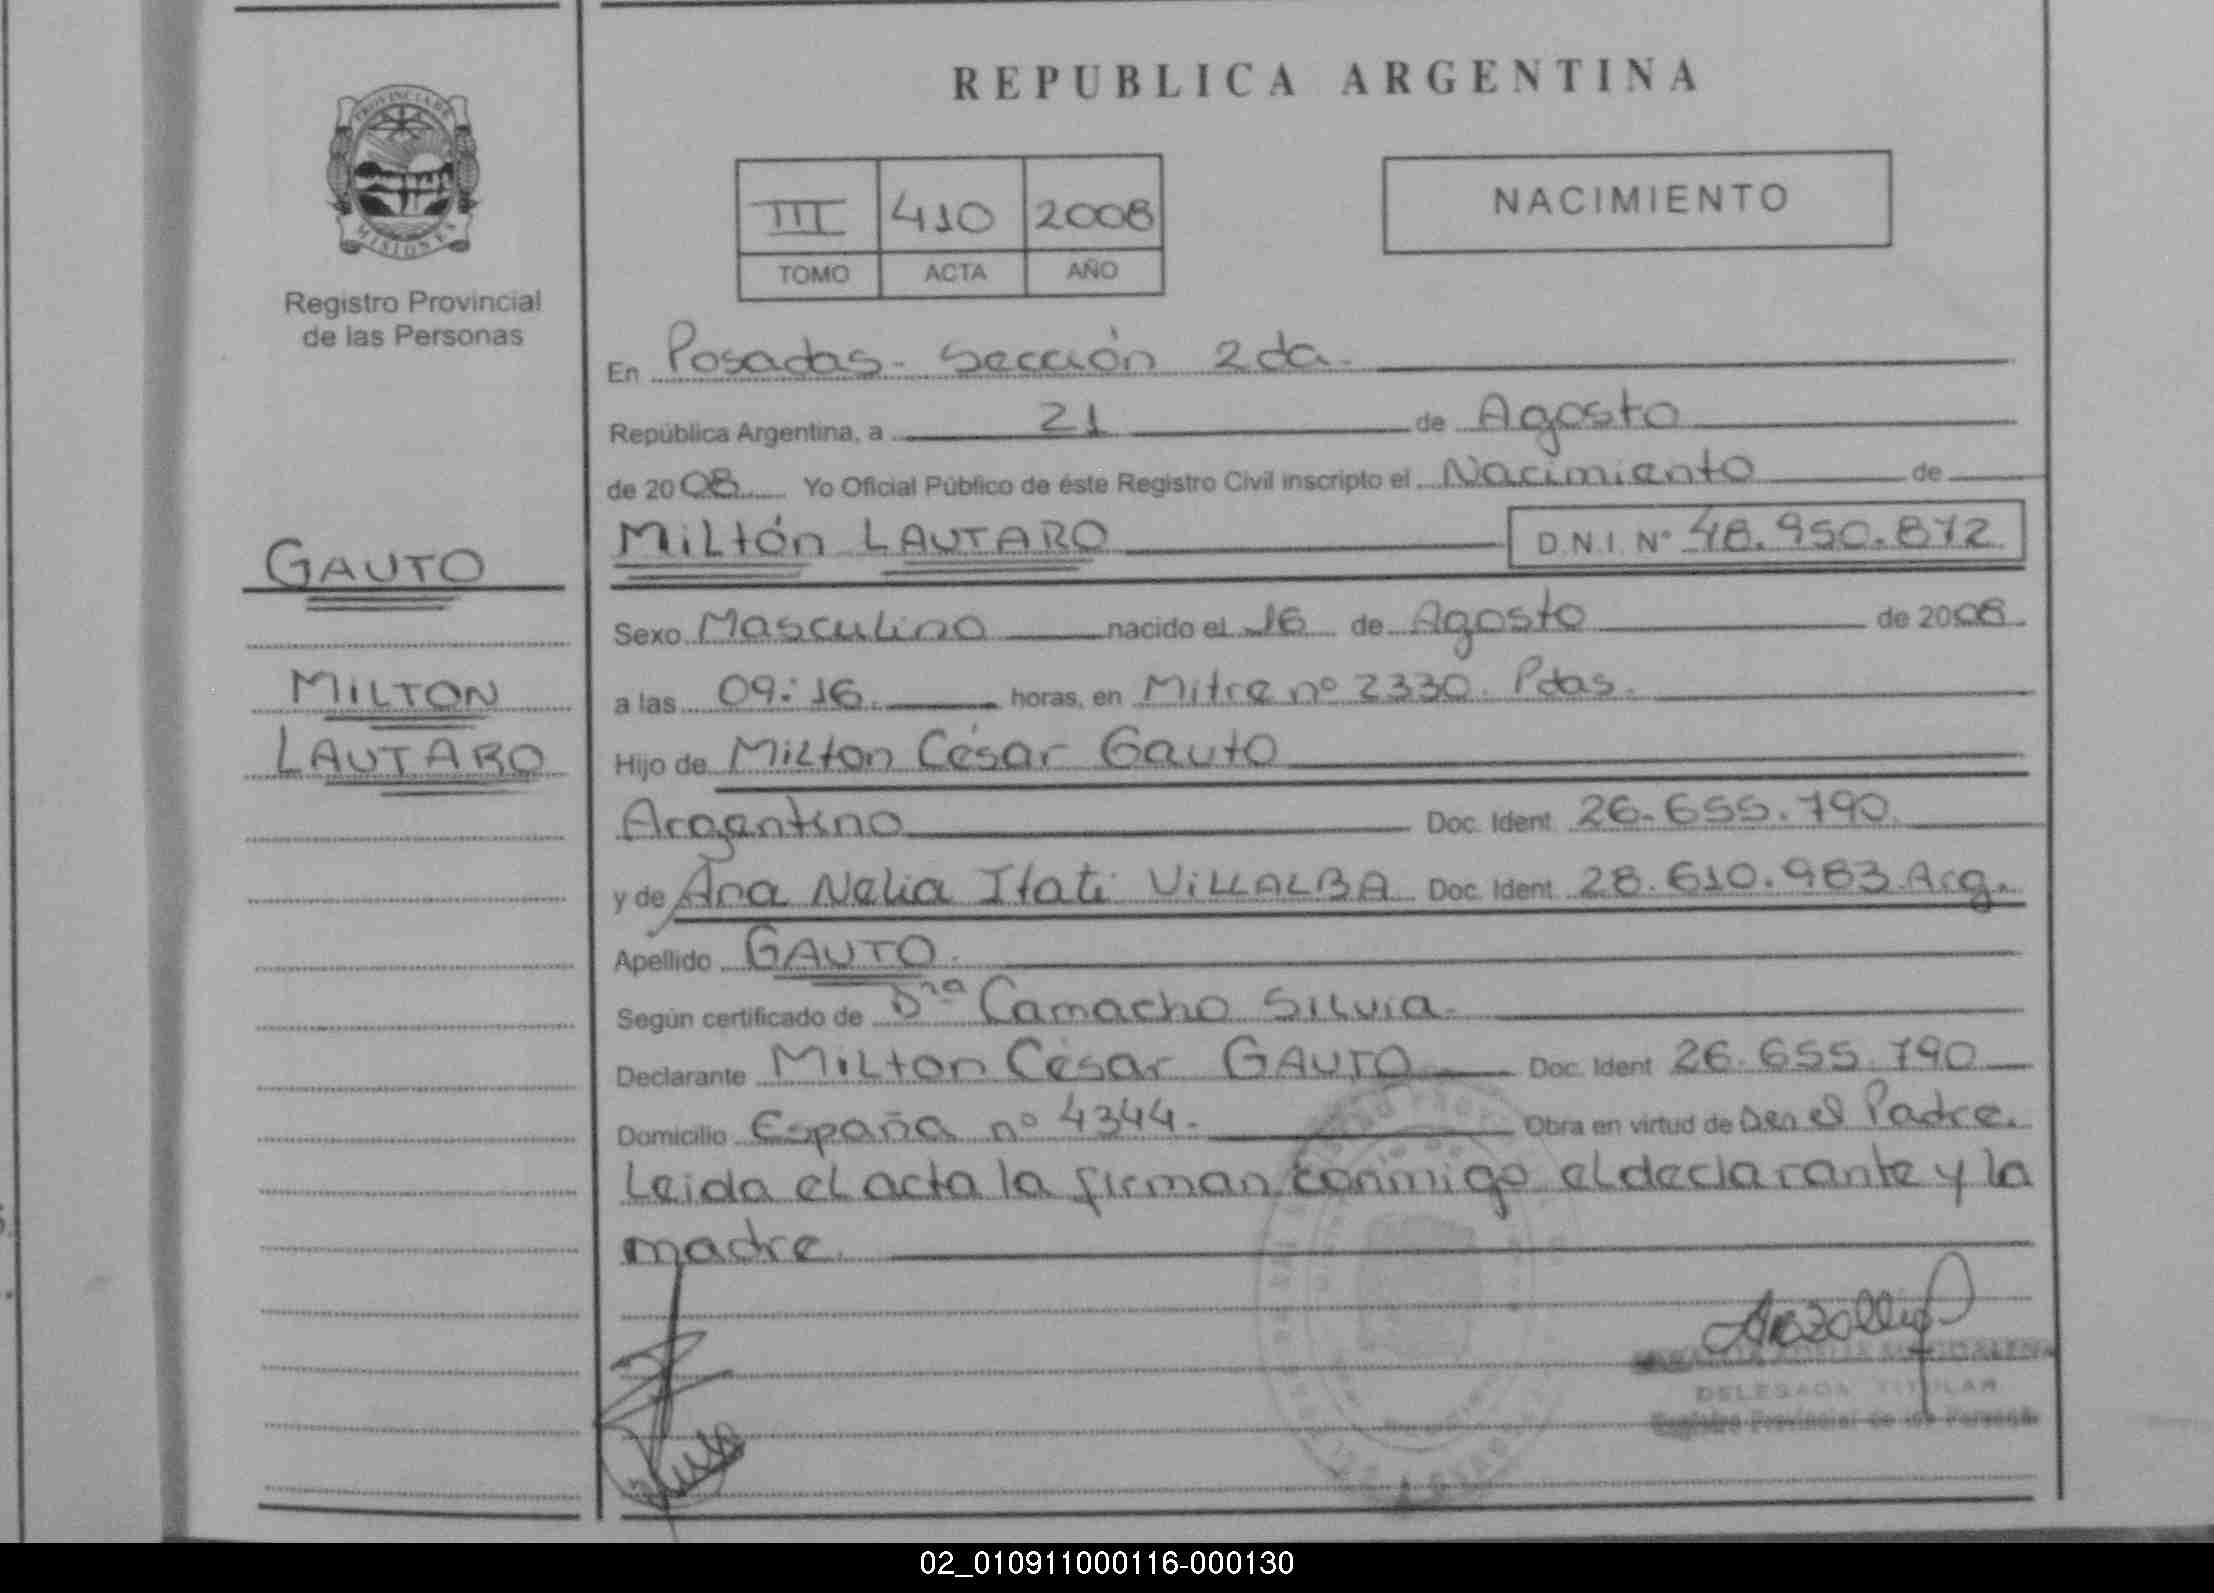 REPUBLICA ARGENTINA
PROVINCIA DE
MISIONES
Registro Provincial
de las Personas
III 410 2008
TOMO ACTA AÑO
NACIMIENTO
GAUTO
MILTON
LAUTARO
En Posadas - Sección 2da.
República Argentina, a 21 de Agosto
de 2008 Yo Oficial Público de éste Registro Civil inscripto el Nacimiento de
Miltón LAUTARO D.N.I. Nº 48.950.872
Sexo Masculino nacido el 16 de Agosto de 2008.
a las 09:16. horas, en Mitre nº 2330. Pdas.
Hijo de Milton César Gauto
Argentino Doc. Ident. 26.655.790
y de Ana Nelia Itati VILLALBA Doc. Ident. 28.610.983 Arg.
Apellido GAUTO.
Según certificado de Dra Camacho Silvia.
Declarante Milton César GAUTO Doc. Ident. 26.655.790
Domicilio España nº 4344. Obra en virtud de Ser el Padre.
Leida el acta la firman conmigo el declarante y la
madre.
DELEGADA TITULAR
Registro Provincial de las Personas
02_010911000116-000130